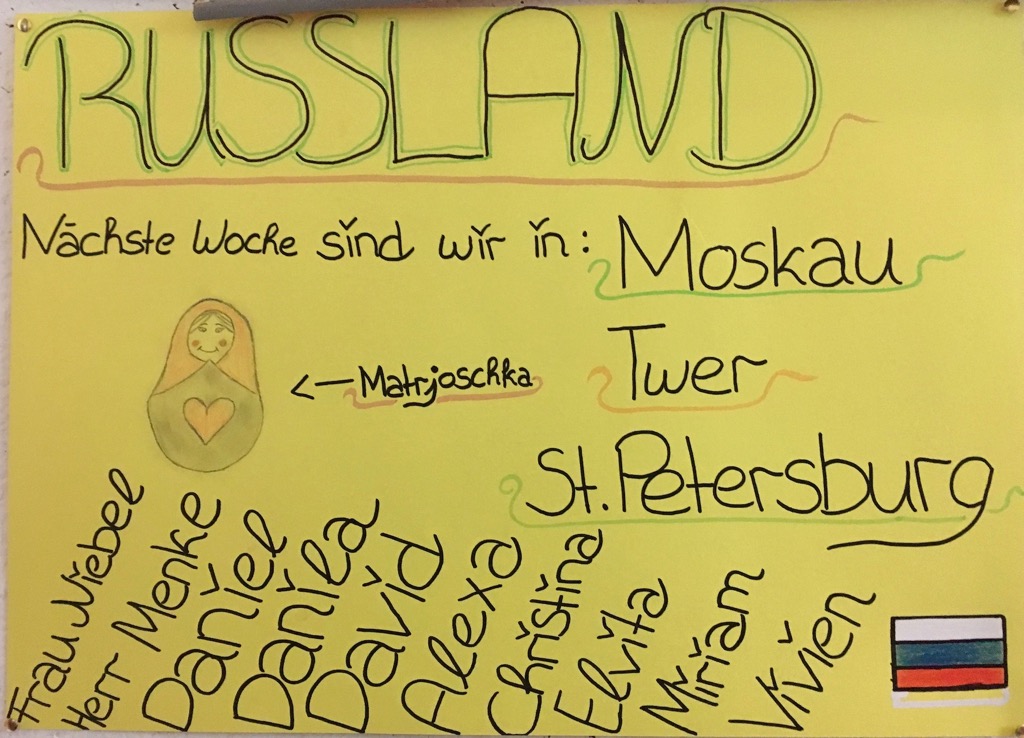 RUSSLAND
Nächste Woche sind wir in: Moskau
Twer
← Matrjoschka
St. Petersburg
Frau Niebel
Herr Menke
Daniel
Danila
David
Alexa
Christina
Elvita
Miriam
Vivien